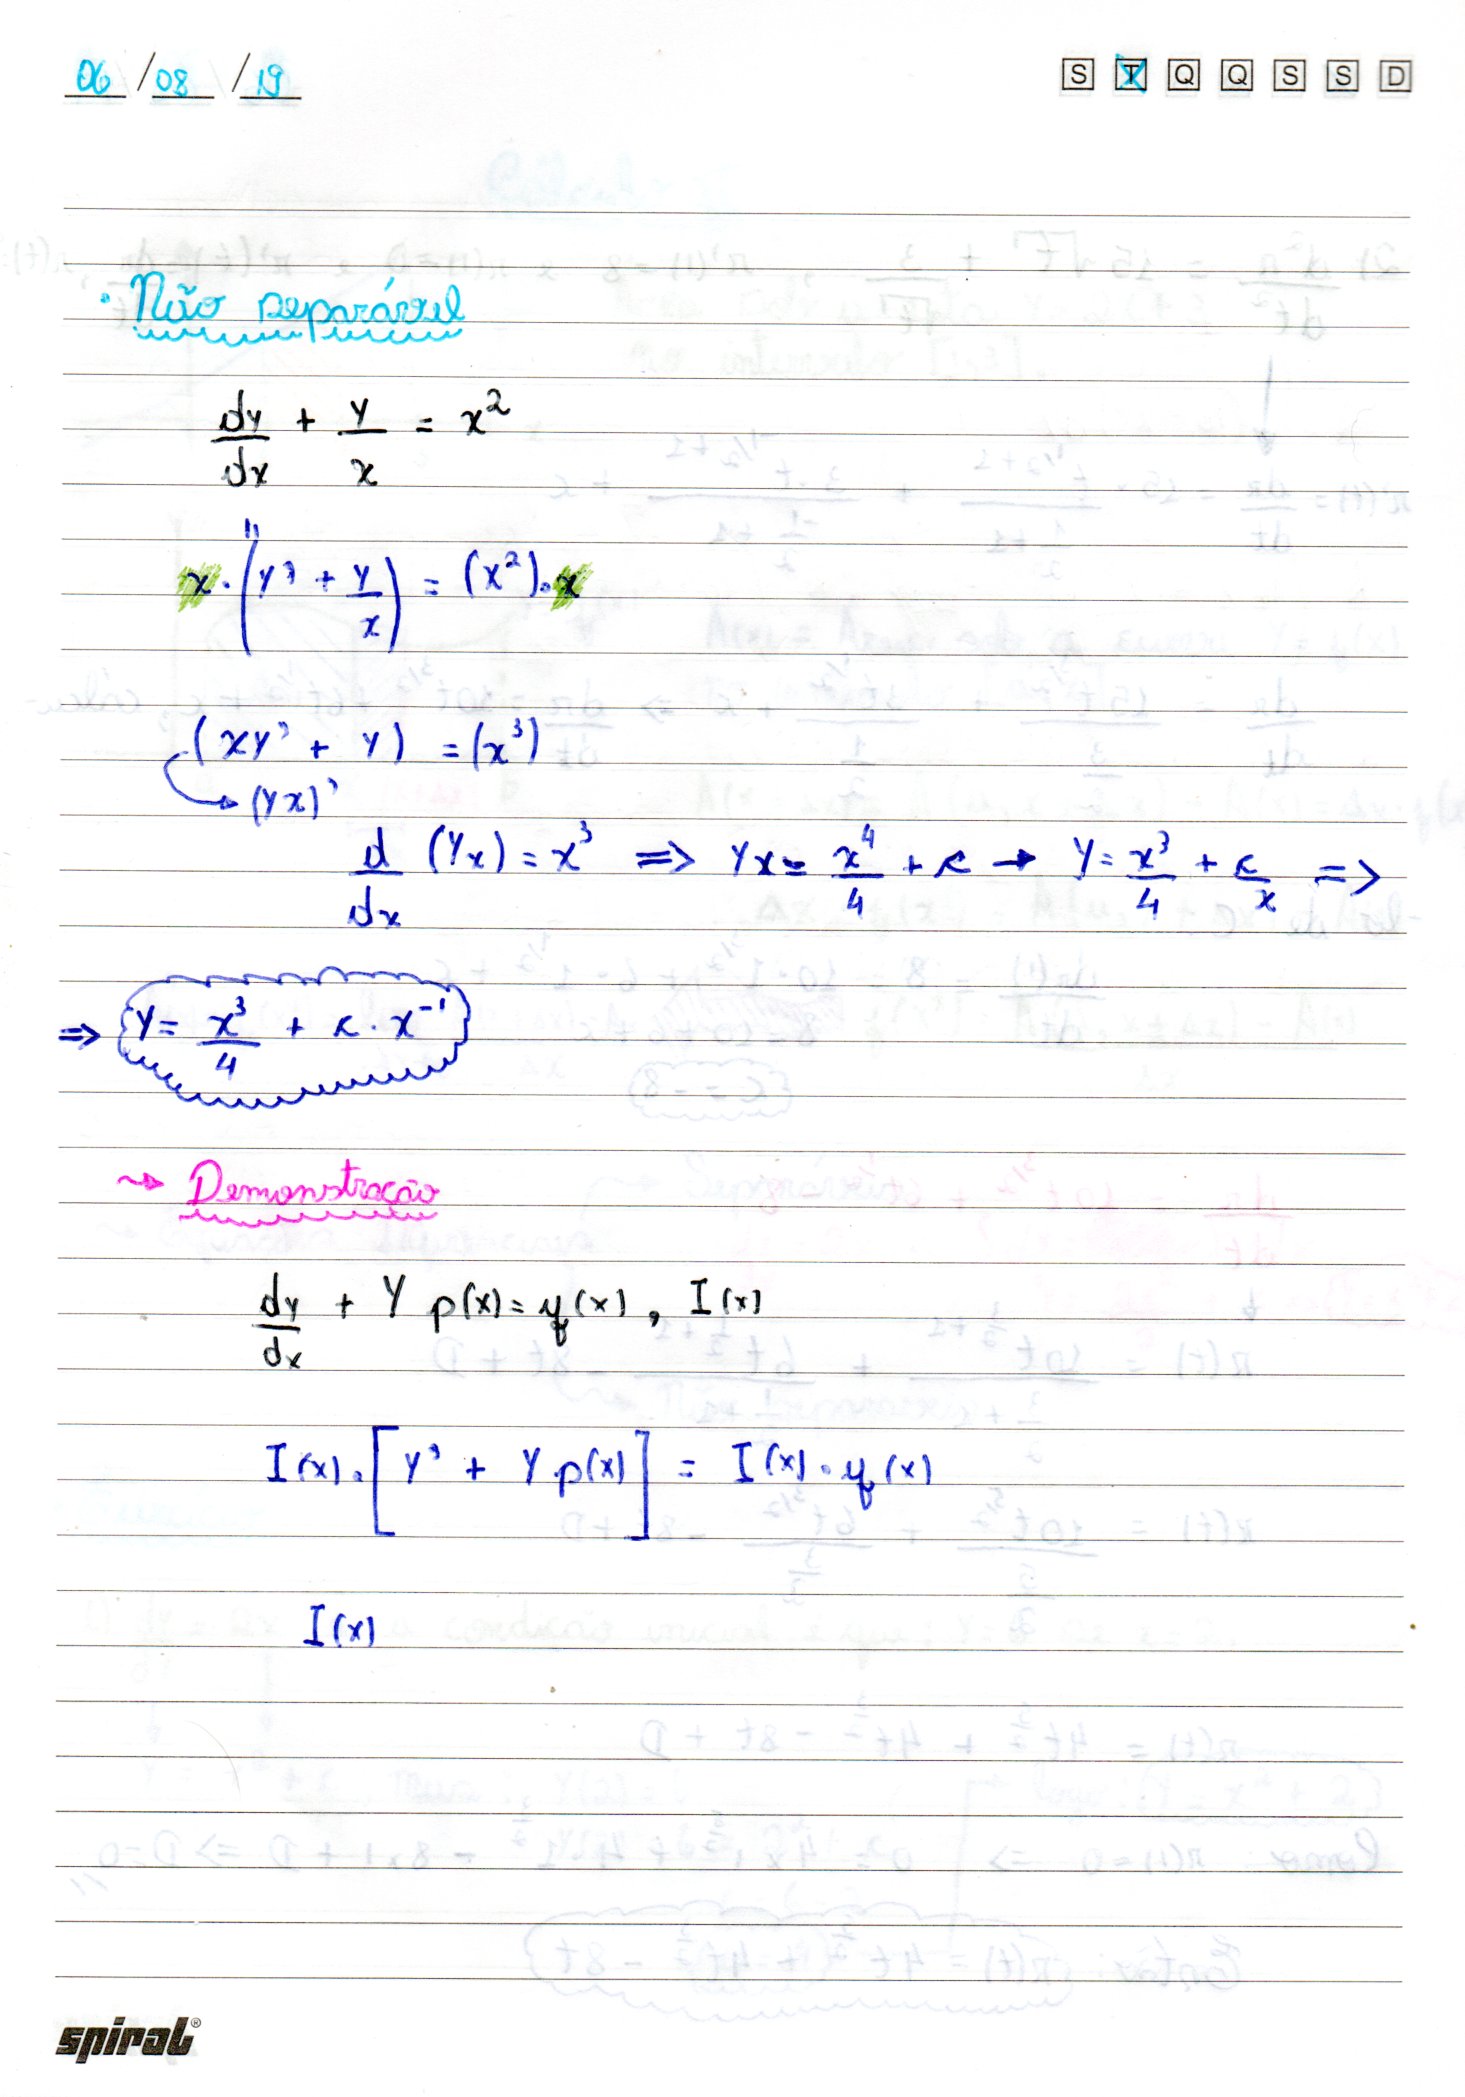 06 / 08 / 19 S T Q Q S S D
· Não separável
dy/dx + y/x = x²
x · (y' + y/x) = (x²) · x
(xy' + y) = (x³)
→ (yx)'
d/dx (yx) = x³ => yx = x⁴/4 + c → y = x³/4 + c/x =>
=> y = x³/4 + c · x⁻¹
~> Demonstração
dy/dx + y p(x) = q(x), I(x)
I(x) · [y' + y p(x)] = I(x) · q(x)
I(x)
spiral®